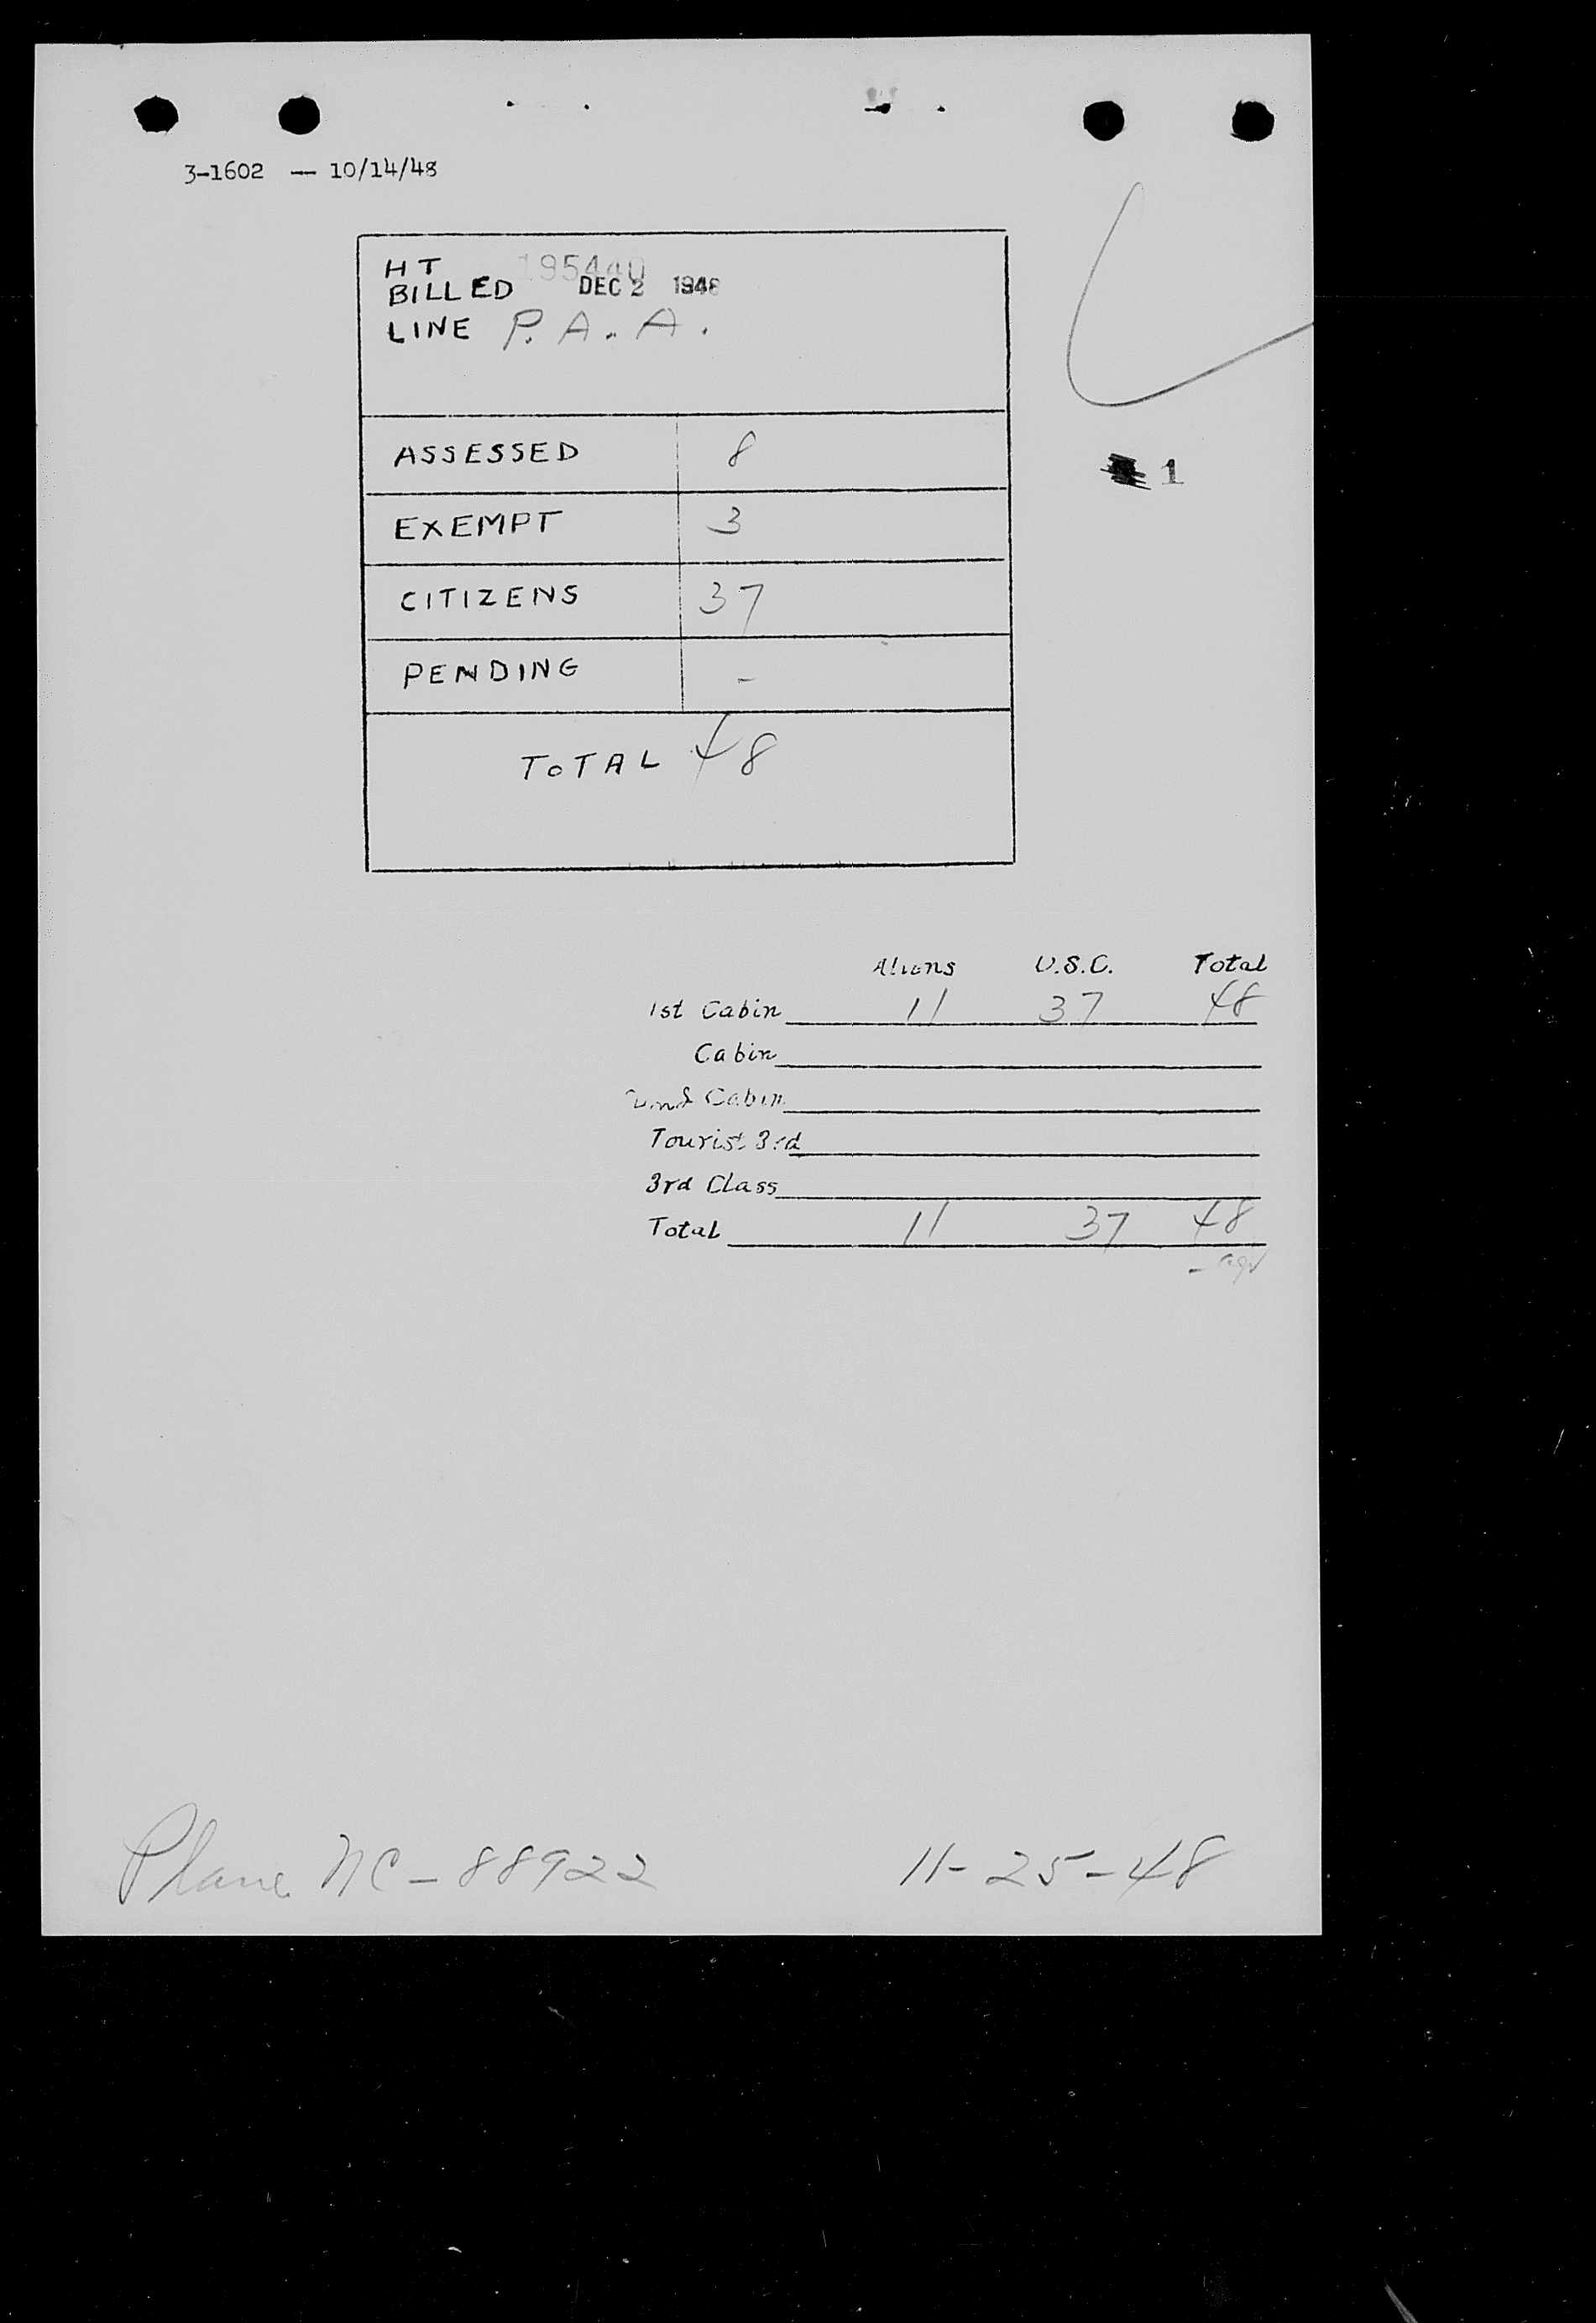 3-1602 — 10/14/48
HT 195440
BILLED DEC 2 1948
LINE P. A. A.
1
ASSESSED 8
EXEMPT 3
CITIZENS 37
PENDING -
TOTAL 48
Aliens U.S.C. Total
1st Cabin 11 37 48
Cabin
Cabin
Tourist 3rd
3rd Class
Total 11 37 48
Plane NC-88922 11-25-48